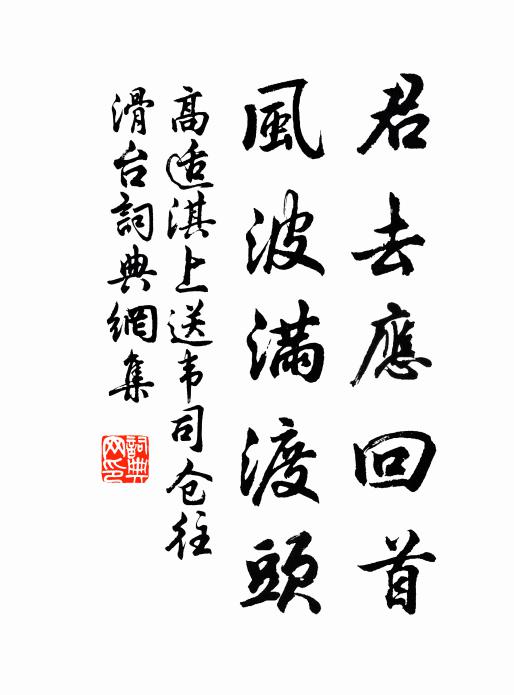 君去應回首
風波滿渡頭
高适淇上送韦司仓往
滑台詞典網集
詞典网印